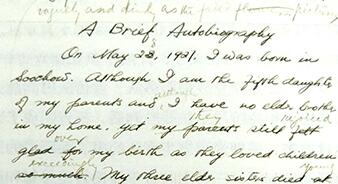 vaguely and died, as the
A Brief Autobiography
On May 23, 1921, I was born in
Soochow. Although I am the fifth daughter
of my parents and although I have no elder brother
they rejoiced
in my home, yet my parents still felt
over
glad for my birth as they loved children
exceedingly young
so much. My three elder sisters died at